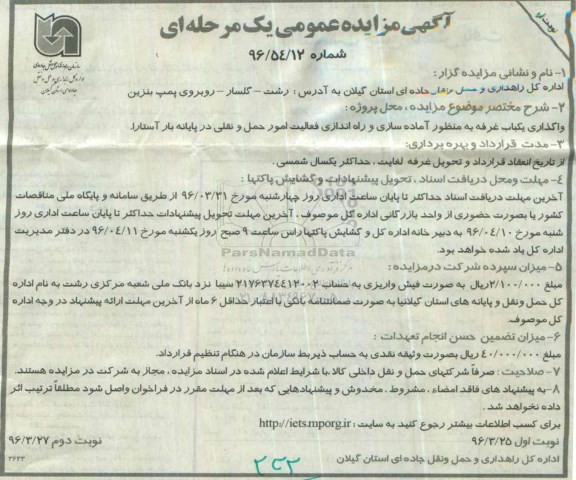 نوبت اول
آگهی مزایده عمومی یک مرحله‌ای
شماره ۹۶/۵۴/۱۲
سازمان راهداری و حمل و نقل جاده‌ای
اداره کل راهداری و حمل و نقل
جاده‌ای استان گیلان
۱- نام و نشانی مزایده گزار :
اداره کل راهداری و حمل و نقل جاده ای استان گیلان به آدرس : رشت – گلسار – روبروی پمپ بنزین
۲- شرح مختصر موضوع مزایده ، محل پروژه :
واگذاری یکباب غرفه به منظور آماده سازی و راه اندازی فعالیت امور حمل و نقلی در پایانه بار آستارا.
۳- مدت قرارداد و بهره برداری:
از تاریخ انعقاد قرارداد و تحویل غرفه لغایت ، حداکثر یکسال شمسی .
۴- مهلت ومحل دریافت اسناد ، تحویل پیشنهادات و گشایش پاکتها :
آخرین مهلت دریافت اسناد حداکثر تا پایان ساعت اداری روز چهارشنبه مورخ ۹۶/۰۳/۳۱ از طریق سامانه و پایگاه ملی مناقصات
کشور یا بصورت حضوری از واحد بازرگانی اداره کل موصوف ، آخرین مهلت تحویل پیشنهادات حداکثر تا پایان ساعت اداری روز
شنبه مورخ ۹۶/۰۴/۱۰ به دبیر خانه اداره کل و گشایش پاکتها راس ساعت ۹ صبح روز یکشنبه مورخ ۹۶/۰۴/۱۱ در دفتر مدیریت
اداره کل یاد شده خواهد بود.
ParsNamadData
۵- میزان سپرده شرکت درمزایده :
مبلغ ۲/۱۰۰/۰۰۰ریال به صورت فیش واریزی به حساب ۲۱۷۶۳۷۴۴۱۲۰۰۲ سیبا نزد بانک ملی شعبه مرکزی رشت به نام اداره
کل حمل ونقل و پایانه های استان گیلانیا به صورت ضمانتنامه بانکی با اعتبار حداقل ۶ ماه از آخرین مهلت ارائه پیشنهاد در وجه اداره
کل موصوف.
۶- میزان تضمین حسن انجام تعهدات :
مبلغ ۴۰/۰۰۰/۰۰۰ ریال بصورت وثیقه نقدی به حساب ذیربط سازمان در هنگام تنظیم قرارداد.
۷- صلاحیت : صرفاً شرکتهای حمل و نقل داخلی کالا ، با شرایط اعلام شده در اسناد مزایده ، مجاز به شرکت در مزایده هستند.
۸- به پیشنهاد های فاقد امضاء ، مشروط ، مخدوش و پیشنهادهایی که بعد از مهلت مقرر در فراخوان واصل شود مطلقاً ترتیب اثر
داده نخواهد شد .
برای کسب اطلاعات بیشتر رجوع کنید به سایت : http://iets.mporg.ir
نوبت اول ۹۶/۳/۲۵
نوبت دوم ۹۶/۳/۲۷
اداره کل راهداری و حمل ونقل جاده ای استان گیلان
۲۶۲۳
۲۵۳